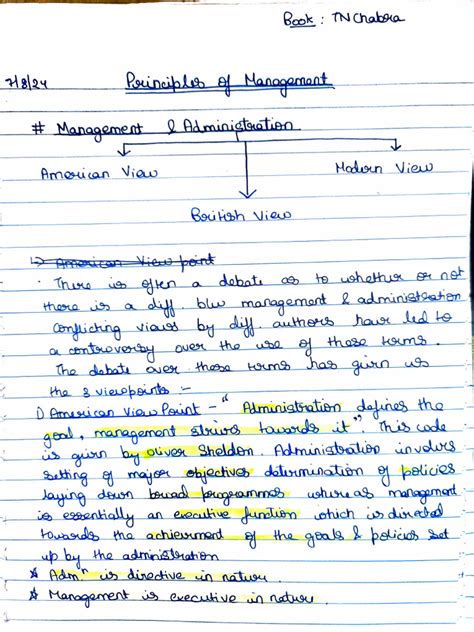 Book : TN Chabra
7/8/24 Principles of Management
# Management & Administration
American View Modern View
British View
↳ American View point
· There is often a debate as to whether or not
there is a diff. b/w management & administration
Conflicting views by diff authors have led to
a controversy over the use of these terms.
The debate over these terms has given us
the 3 viewpoints :-
1) American View Point - "Administration defines the
goal, management strives towards it" This code
is given by Oliver Sheldon. Administration involves
setting of major objectives determination of policies
laying down broad programmes whereas management
is essentially an executive function which is directed
towards the achievement of the goals & policies set
up by the administration
* Admⁿ is directive in nature.
* Management is executive in nature.